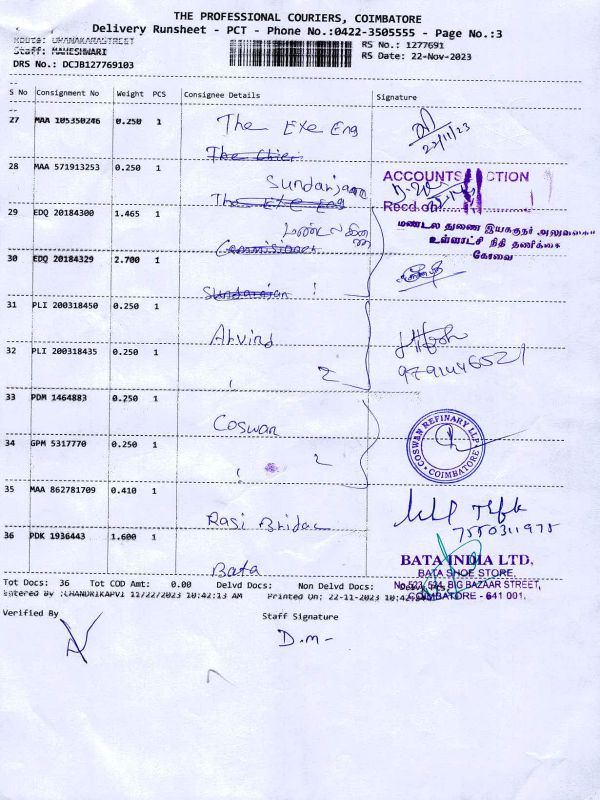 THE PROFESSIONAL COURIERS, COIMBATORE
Delivery Runsheet - PCT - Phone No.:0422-3505555 - Page No.:3
Route:
Staff: MAHESHWARI
DRS No.: DCJB127769103
RS No.: 1277691
RS Date: 22-Nov-2023
S No Consignment No Weight PCS Consignee Details Signature
27 MAA 105350246 0.250 1 The Exe Eng
23/11/23
The Chief
28 MAA 571913253 0.250 1 Sundarjaan
ACCOUNTS SECTION
The Exe Eng
Recd.on
29 EDQ 20184300 1.465 1
மண்டல துணை இயக்குநர் அலுவலகம்
உள்ளாட்சி நிதி தணிக்கை
கோவை
Commisioner
30 EDQ 20184329 2.700 1
Sundarajan
31 PLI 200318450 0.250 1 Arvind
9791446521
32 PLI 200318435 0.250 1 2
33 PDM 1464883 0.250 1 Coswan
COSWAN REFINARY LLP
COIMBATORE
34 GPM 5317770 0.250 1 2
35 MAA 862781709 0.410 1 Rasi Bridac
7550311975
36 PDK 1936443 1.600 1 Bata
BATA INDIA LTD.
BATA SHOE STORE,
No.523/524, BIG BAZAAR STREET,
COIMBATORE - 641 001.
Tot Docs: 36 Tot COD Amt: 0.00 Delvd Docs: Non Delvd Docs:
Entered By :CHANDRIKAPVI 11/22/2023 10:42:13 AM Printed On: 22-11-2023 10:42:
Verified By
Staff Signature
D.M-